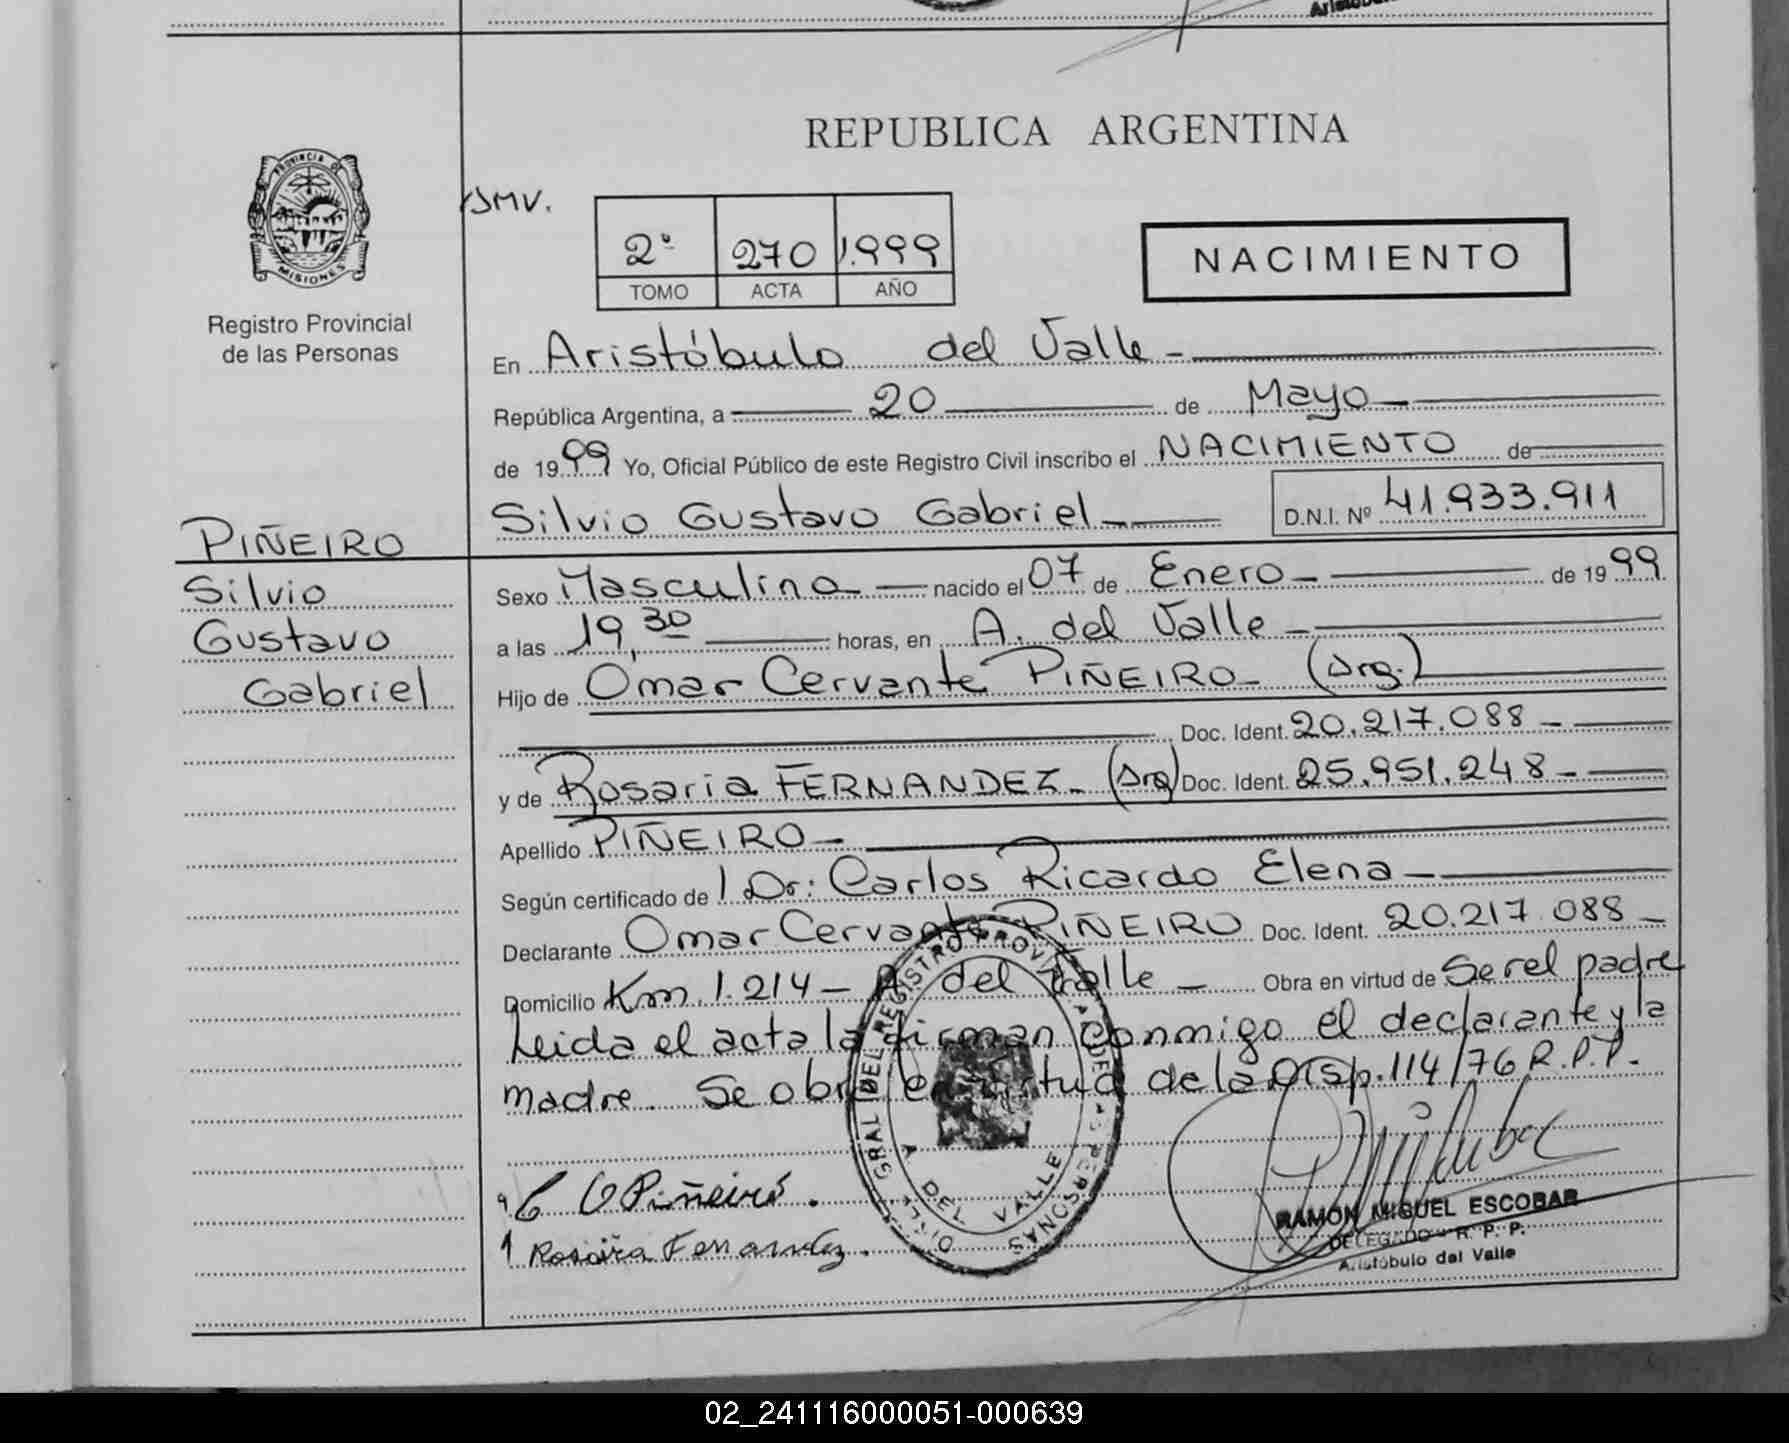 Aristóbul
REPUBLICA ARGENTINA
PROVINCIA DE
MISIONES
Registro Provincial
de las Personas
JMV.
2º 270 1.999
TOMO ACTA AÑO
NACIMIENTO
En Aristóbulo del Valle -
República Argentina, a 20 de Mayo -
de 1999 Yo, Oficial Público de este Registro Civil inscribo el NACIMIENTO de
Silvio Gustavo Gabriel - D.N.I. Nº 41.933.911
PIÑEIRO
Silvio
Gustavo
Gabriel
Sexo Masculino nacido el 07 de Enero - de 1999
a las 19,30 horas, en A. del Valle -
Hijo de Omar Cervante PIÑEIRO - (Arg.)
Doc. Ident. 20.217.088 -
y de Rosaria FERNANDEZ - (Arg) Doc. Ident. 25.951.248 -
Apellido PIÑEIRO -
Según certificado de l Dr: Carlos Ricardo Elena -
Declarante Omar Cervante PIÑEIRO Doc. Ident. 20.217.088 -
Domicilio Km. 1.214 - A. del Valle - Obra en virtud de Ser el padre
Leida el acta la firman conmigo el declarante y la
madre. Se obra en virtud de la Disp. 114/76 R.P.P.
GRAL DEL REGISTRO PROVINCIAL DE LAS PERSONAS
A. DEL VALLE
O Piñeiro.
Rosaria Fernandez.
RAMÓN MIGUEL ESCOBAR
DELEGADO - R. P. P.
Aristóbulo del Valle
02_241116000051-000639